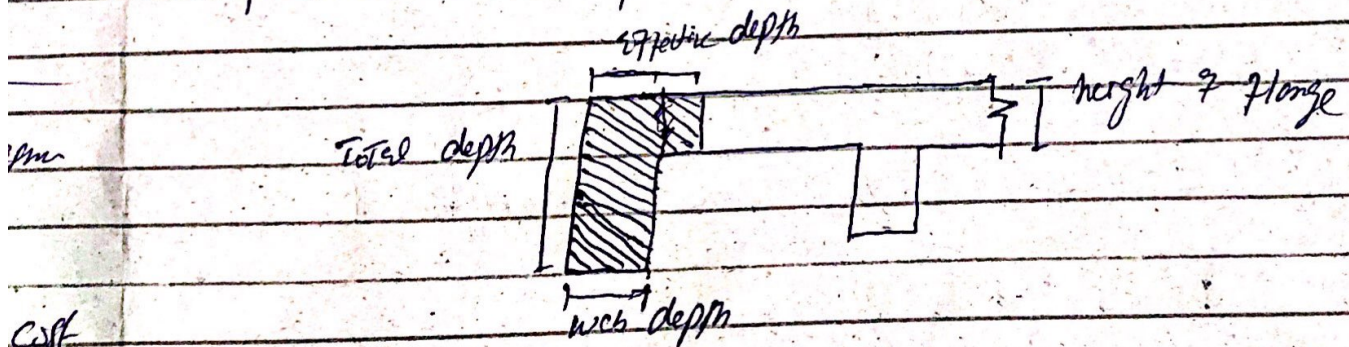 Effective depth
height of flange
Total depth
web depth
cost